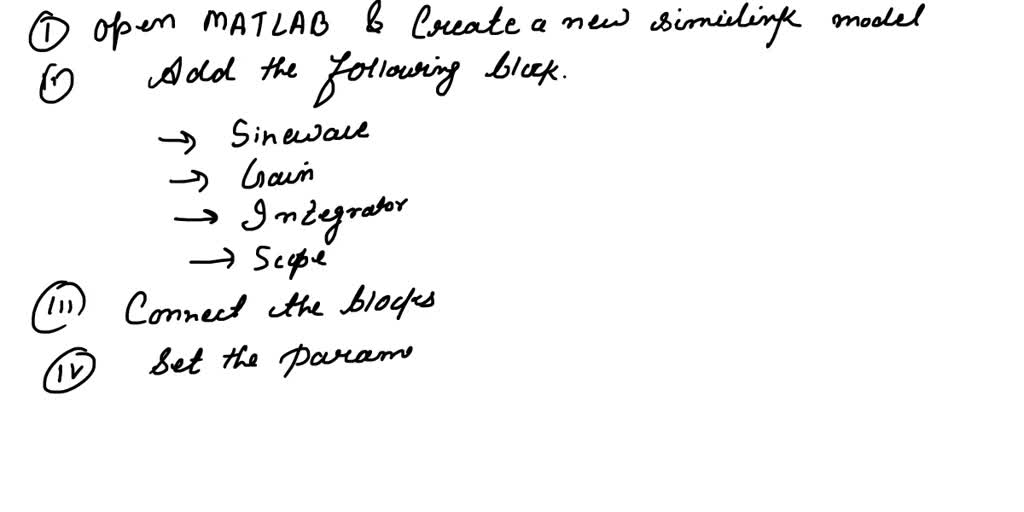 (I) open MATLAB & Create a new simulink model
(ii) Add the following block.
→ Sinewave
→ Gain
→ Integrator
→ Scope
(III) Connect the blocks
(IV) Set the param